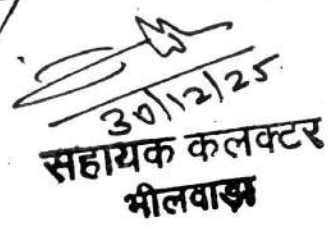 30/12/25
सहायक कलक्टर
भीलवाड़ा